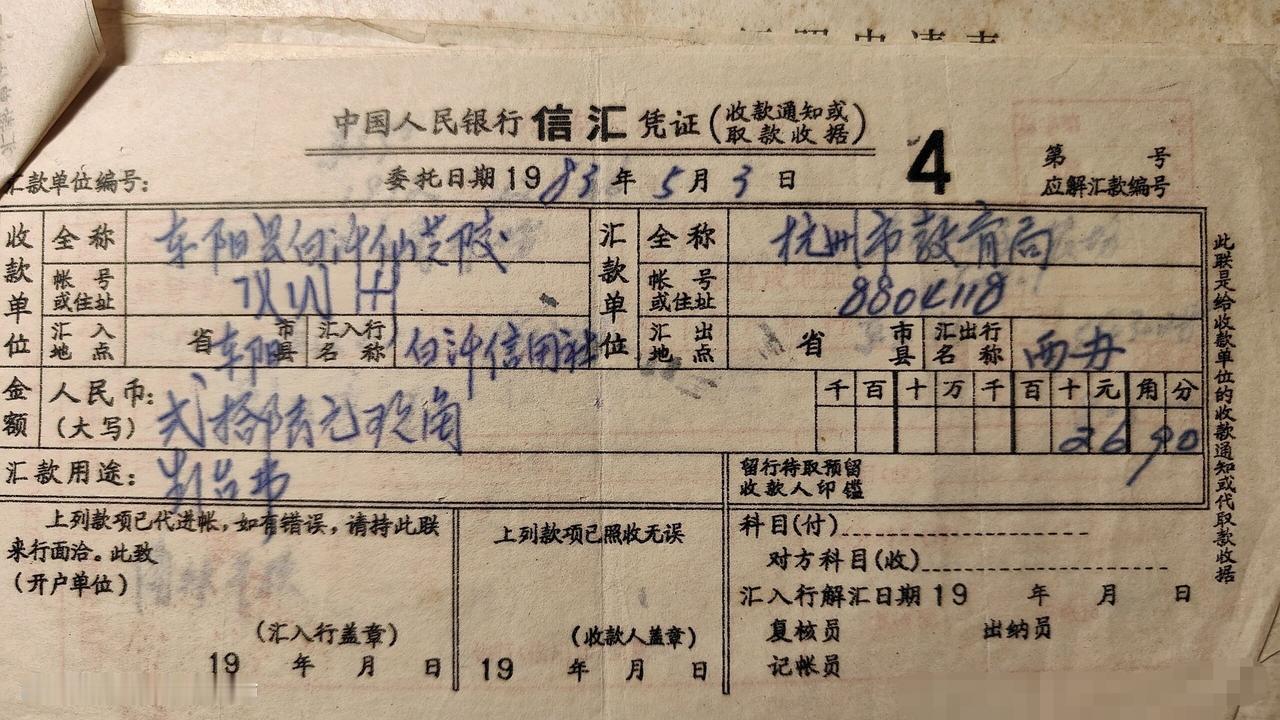 中国人民银行信汇凭证(收款通知或取款收据) 4
第 号
汇款单位编号: 委托日期1983年5月3日 应解汇款编号
收款单位 全称 东阳县白 汇款单位 全称 杭州市教育局
帐号或住址 帐号或住址 8804118
汇入地点 省东阳市县 汇入行名称 白 信用社 汇出地点 省 市县 汇出行名称 西办
金额 人民币:(大写) 贰拾陆元玖角 千百十万千百十元角分 2690
汇款用途: 留行待取预留收款人印鑑
上列款项已代进帐,如有错误,请持此联
来行面洽。此致
(开户单位)
(汇入行盖章)
19 年 月 日
上列款项已照收无误
(收款人盖章)
19 年 月 日
科目(付)
对方科目(收)
汇入行解汇日期19 年 月 日
复核员 出纳员
记帐员
此联是给收款单位的收款通知或代取款收据